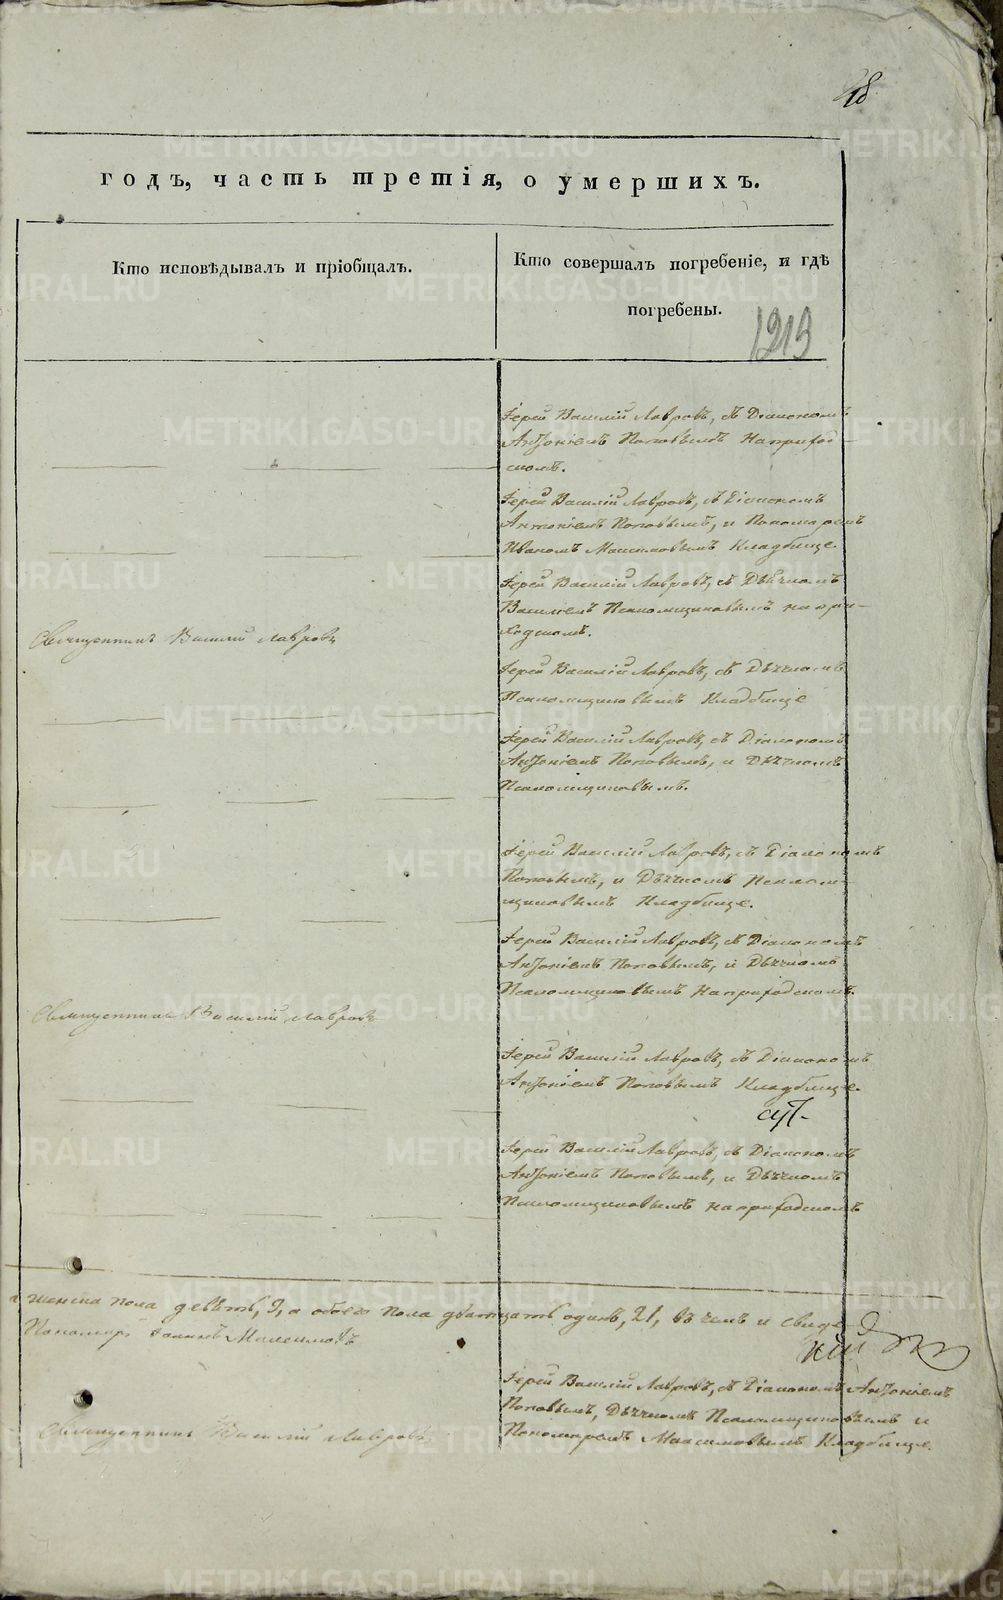 18
годъ, часть третія, о умершихъ.
Кто исповѣдывалъ и пріобщалъ.
Кто совершалъ погребеніе, и гдѣ
погребены.
1219
Іерей Василій Лавровъ, съ Діакономъ
Антоніемъ Поповымъ На приход-
скомъ.
Іерей Василій Лавровъ, съ Діакономъ
Антоніемъ Поповымъ, и Пономаремъ
Иваномъ Максимовымъ Кладбище.
Іерей Василій Лавровъ, съ Дьячкомъ
Василіемъ Псаломщиковымъ на при-
ходскомъ.
Священникъ Василій Лавровъ
Іерей Василій Лавровъ, съ Дьячкомъ
Псаломщиковымъ Кладбище
Іерей Василій Лавровъ, съ Діакономъ
Антоніемъ Поповымъ, и Дьячкомъ
Псаломщиковымъ.
Іерей Василій Лавровъ, съ Діакономъ
Поповымъ, и Дьячкомъ Псалом-
щиковымъ Кладбище.
Іерей Василій Лавровъ, съ Діакономъ
Антоніемъ Поповымъ, и Дьячкомъ
Псаломщиковымъ На приходскомъ.
Священникъ Василій Лавровъ
Іерей Василій Лавровъ, съ Діакономъ
Антоніемъ Поповымъ Кладбище.
Іерей Василій Лавровъ, съ Діакономъ
Антоніемъ Поповымъ, и Дьячкомъ
Псаломщиковымъ на приходскомъ
а женска пола девять, 9, а обоего пола дватцать одинъ, 21, въ чемъ и свиде
Пономарь Іоаннъ Максимовъ
Іерей Василій Лавровъ, съ Діакономъ Антоніемъ
Поповымъ, Дьячкомъ Псаломщиковымъ и
Пономаремъ Максимовымъ Кладбище.
Священникъ Василій Лавровъ
METRIKI.GASO-URAL.RU